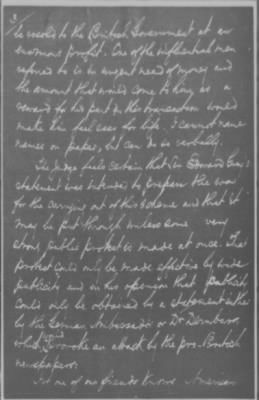 3/
be resold to the British Government at an
enormous profit. One of the influential men
referred to is in urgent need of money and
the amount that would come to him as a
reward for his part in this transaction would
make him feel easy for life. I cannot name
names on paper, but can do so verbally.
The judge feels certain that Sir Edward Grey's
statement was intended to prepare the way
for the carrying out of this scheme and that it
may be put through unless some very
strong public protest is made at once. That
protest could only be made effective by wide
publicity and in his opinion that publicity
could only be obtained by a statement either
by the German Ambassador or Dr Dernburg
which provoke an attack by the pro-British
newspapers.
Not one of our friends knows American